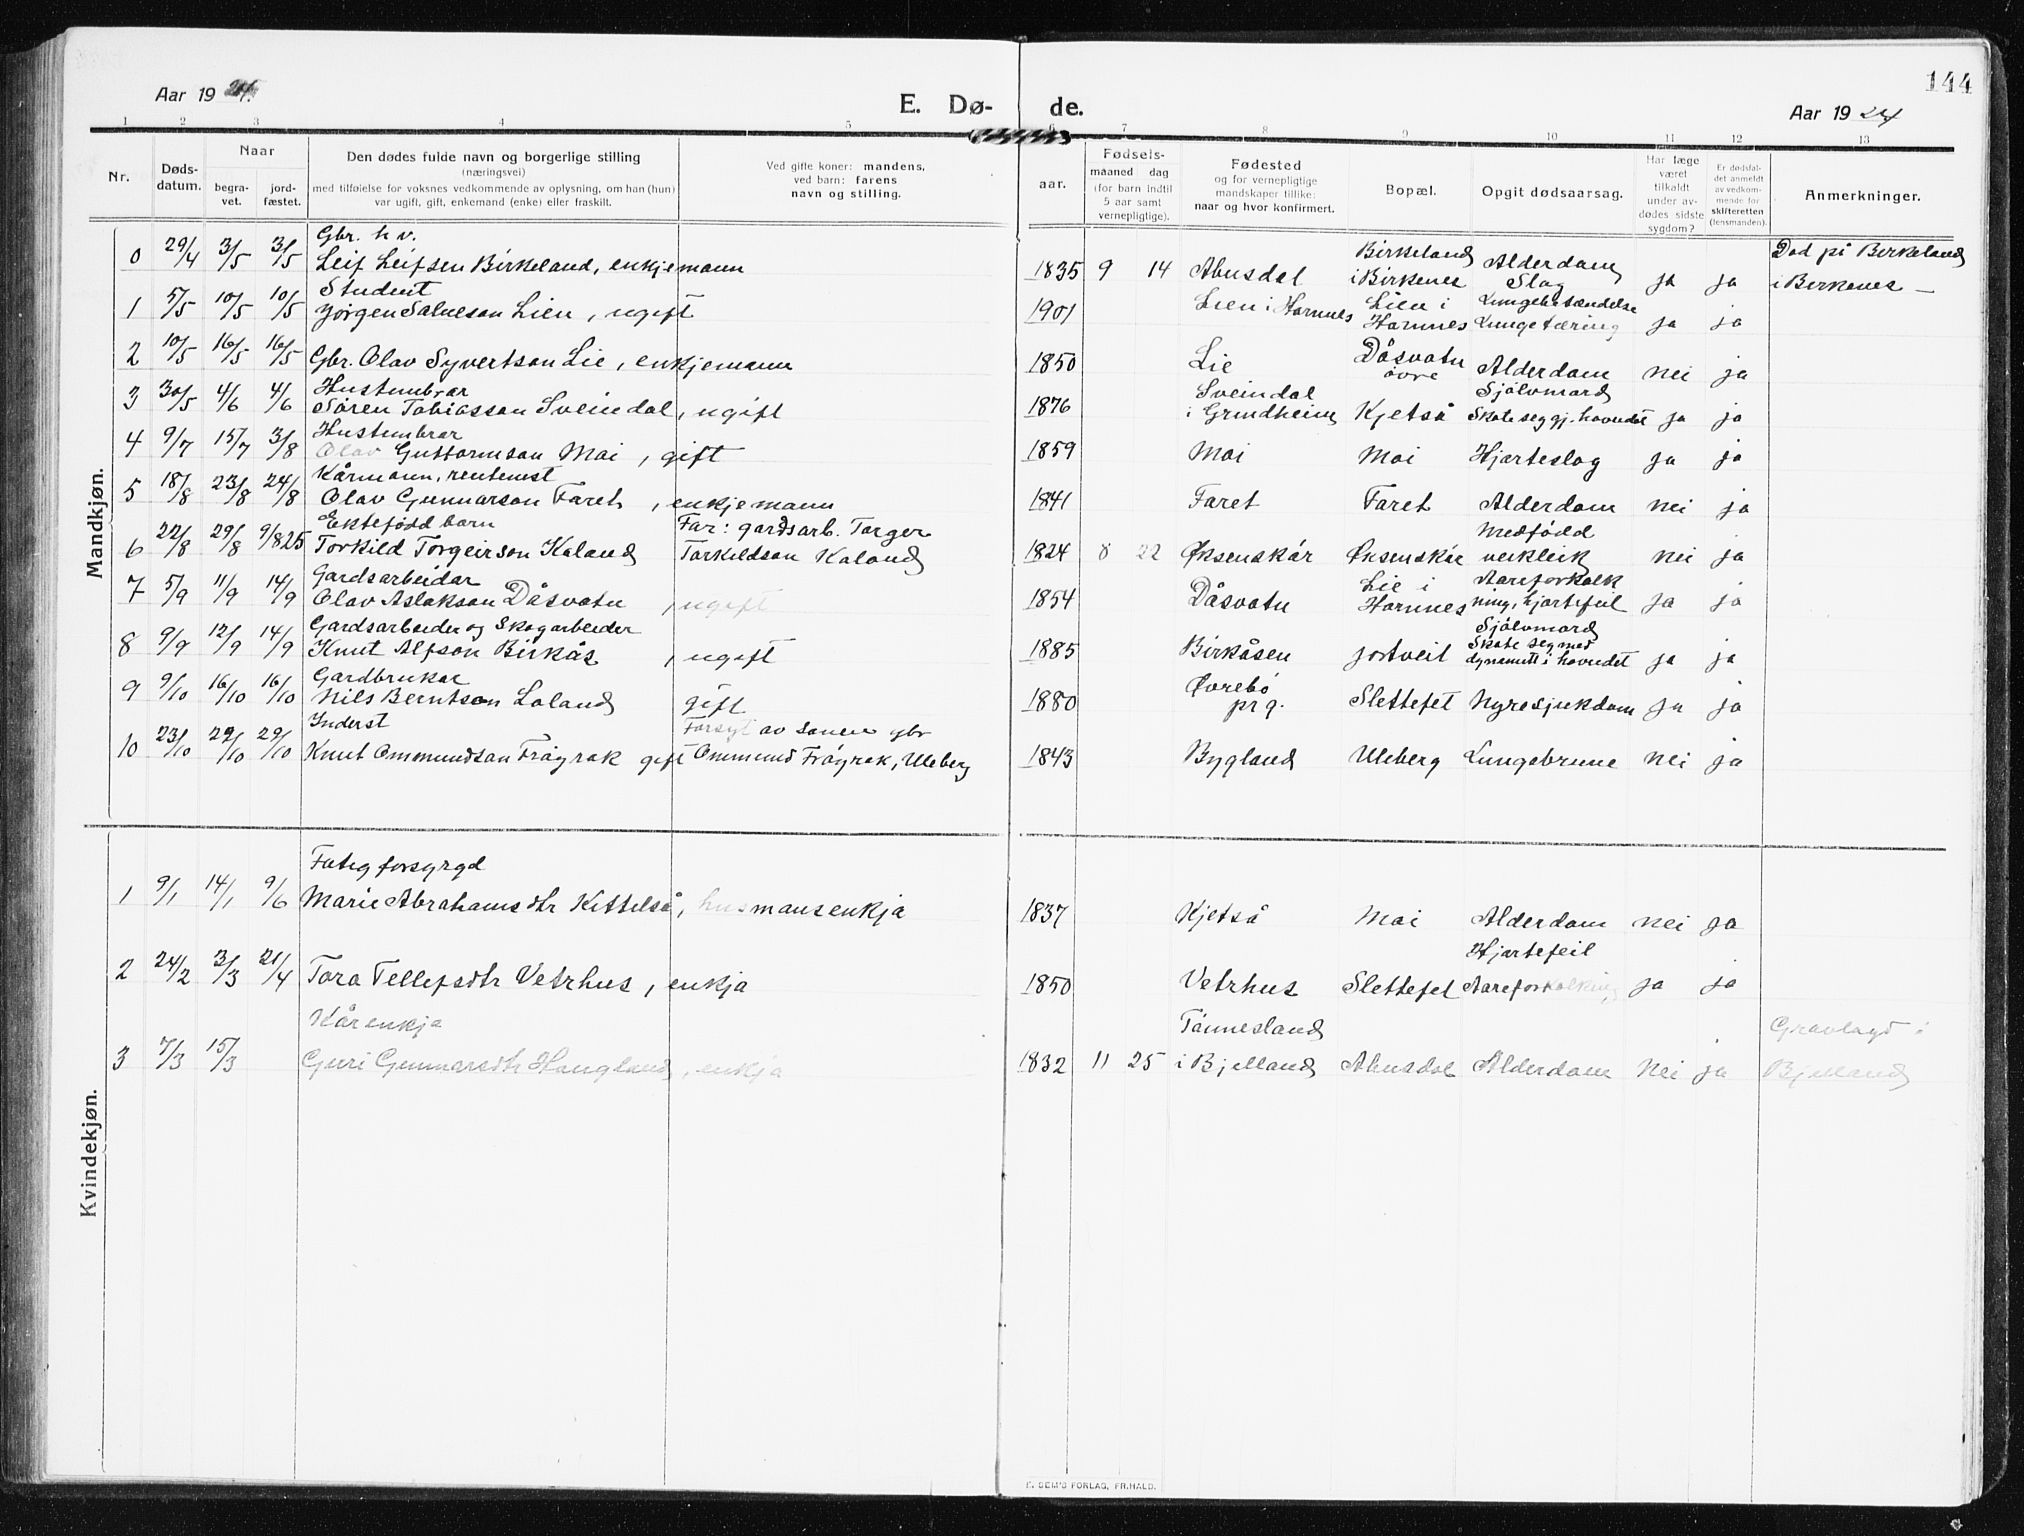 144
Aar 1924.
E. Dø-
de.
Aar 1924
1 2 3 4 5 6 7 8 9 10 11 12 13
Nr.
Døds-
datum.
Naar
begra-
vet.
jord-
fæstet.
Den dødes fulde navn og borgerlige stilling
(næringsvei)
med tilføielse for voksnes vedkommende av oplysning, om han (hun)
var ugift, gift, enkemand (enke) eller fraskilt.
Ved gifte koner: mandens,
ved barn: farens
navn og stilling.
aar.
Fødsels-
maaned dag
(for barn indtil
5 aar samt
vernepligtige).
Fødested
og for vernepligtige
mandskaper tillike:
naar og hvor konfirmert.
Bopæl.
Opgit dødsaarsag.
Har læge
været
tilkaldt
under av-
dødes sidste
sygdom?
Er dødsfal-
det anmeldt
av vedkom-
mende for
skifteretten
(lensmanden).
Anmerkninger.
Mandkjøn.
Gbr. h v. Birkeland Alderdom Død på Birkeland
0 29/4 3/5 3/5 Leif Leifsen Birkeland, enkjemann 1835 9 14 Ahusdal i Birkenes Slag ja ja i Birkenes —
Student Lien i Hornnes Lien i Lungebetændelse
1 5/5 10/5 10/5 Jørgen Salveson Lien, ugift 1901 Hornnes Lungetæring ja ja
Dåsvatn
2 10/5 16/5 16/5 Gbr. Olav Syvertson Lie, enkjemann 1850 Lie øvre Alderdom nei ja
Hustømbrar Sveindal Sjølvmord
3 30/5 4/6 4/6 Søren Tobiasson Sveindal, ugift 1876 i Grindheim Kjetså Skote seg gj. hovudet ja ja
Hustømbrar
4 9/7 15/7 3/8 Olav Guttormson Moi, gift 1859 Moi Moi Hjarteslag ja ja
Kårmann, rentenist
5 18/8 23/8 24/8 Olav Gunnarson Faret, enkjemann 1841 Faret Faret Alderdom nei ja
Ektefødd barn Far: gardsarb. Torger Medfødd
6 22/8 29/8 9/8 25 Torkild Torgeirson Kaland Torkildson Kaland 1824 8 22 Øksenskår Øksenskår veikleik nei ja
Gardsarbeidar Lie i Aareforkalk
7 5/9 11/9 14/9 Olav Aslakson Dåsvatn, ugift 1854 Dåsvatn Hornnes ning, hjartefeil ja ja
Gardsarbeider og Skogarbeider Sjølvmord
Skote seg med
8 9/9 12/9 14/9 Knut Alfson Birkås, ugift 1885 Birkåsen Jortveit dynamitt i hovudet ja ja
Gardbrukar Øvrebø
9 9/10 16/10 16/10 Nils Berntson Loland gift 1880 prg. Slettefet Nyresjukdom ja ja
Inderst Forsyt av sonen gbr
10 23/10 29/10 29/10 Knut Ommundson Frøyrak gift Ommund Frøyrak, Uleberg 1843 Bygland Uleberg Lungebrune nei ja
Kvindekjøn.
Fatigforsyrgd
1 9/1 14/1 9/6 Marie Abrahamsdtr Kittelså, husmansenkja 1837 Kjetså Moi Alderdom nei ja
Hjartefeil
2 24/2 3/3 21/4 Tora Tellefsdtr Vetrhus, enkja 1850 Vetrhus Slettefet Aareforkalking ja ja
Kårenkja Tønnesland Gravlagd i
3 7/3 15/3 Guri Gunnarsdtr Haugland, enkja 1832 11 25 i Bjelland Ahusdal Alderdom nei ja Bjelland
E. SEM'S FORLAG, FR.HALD.